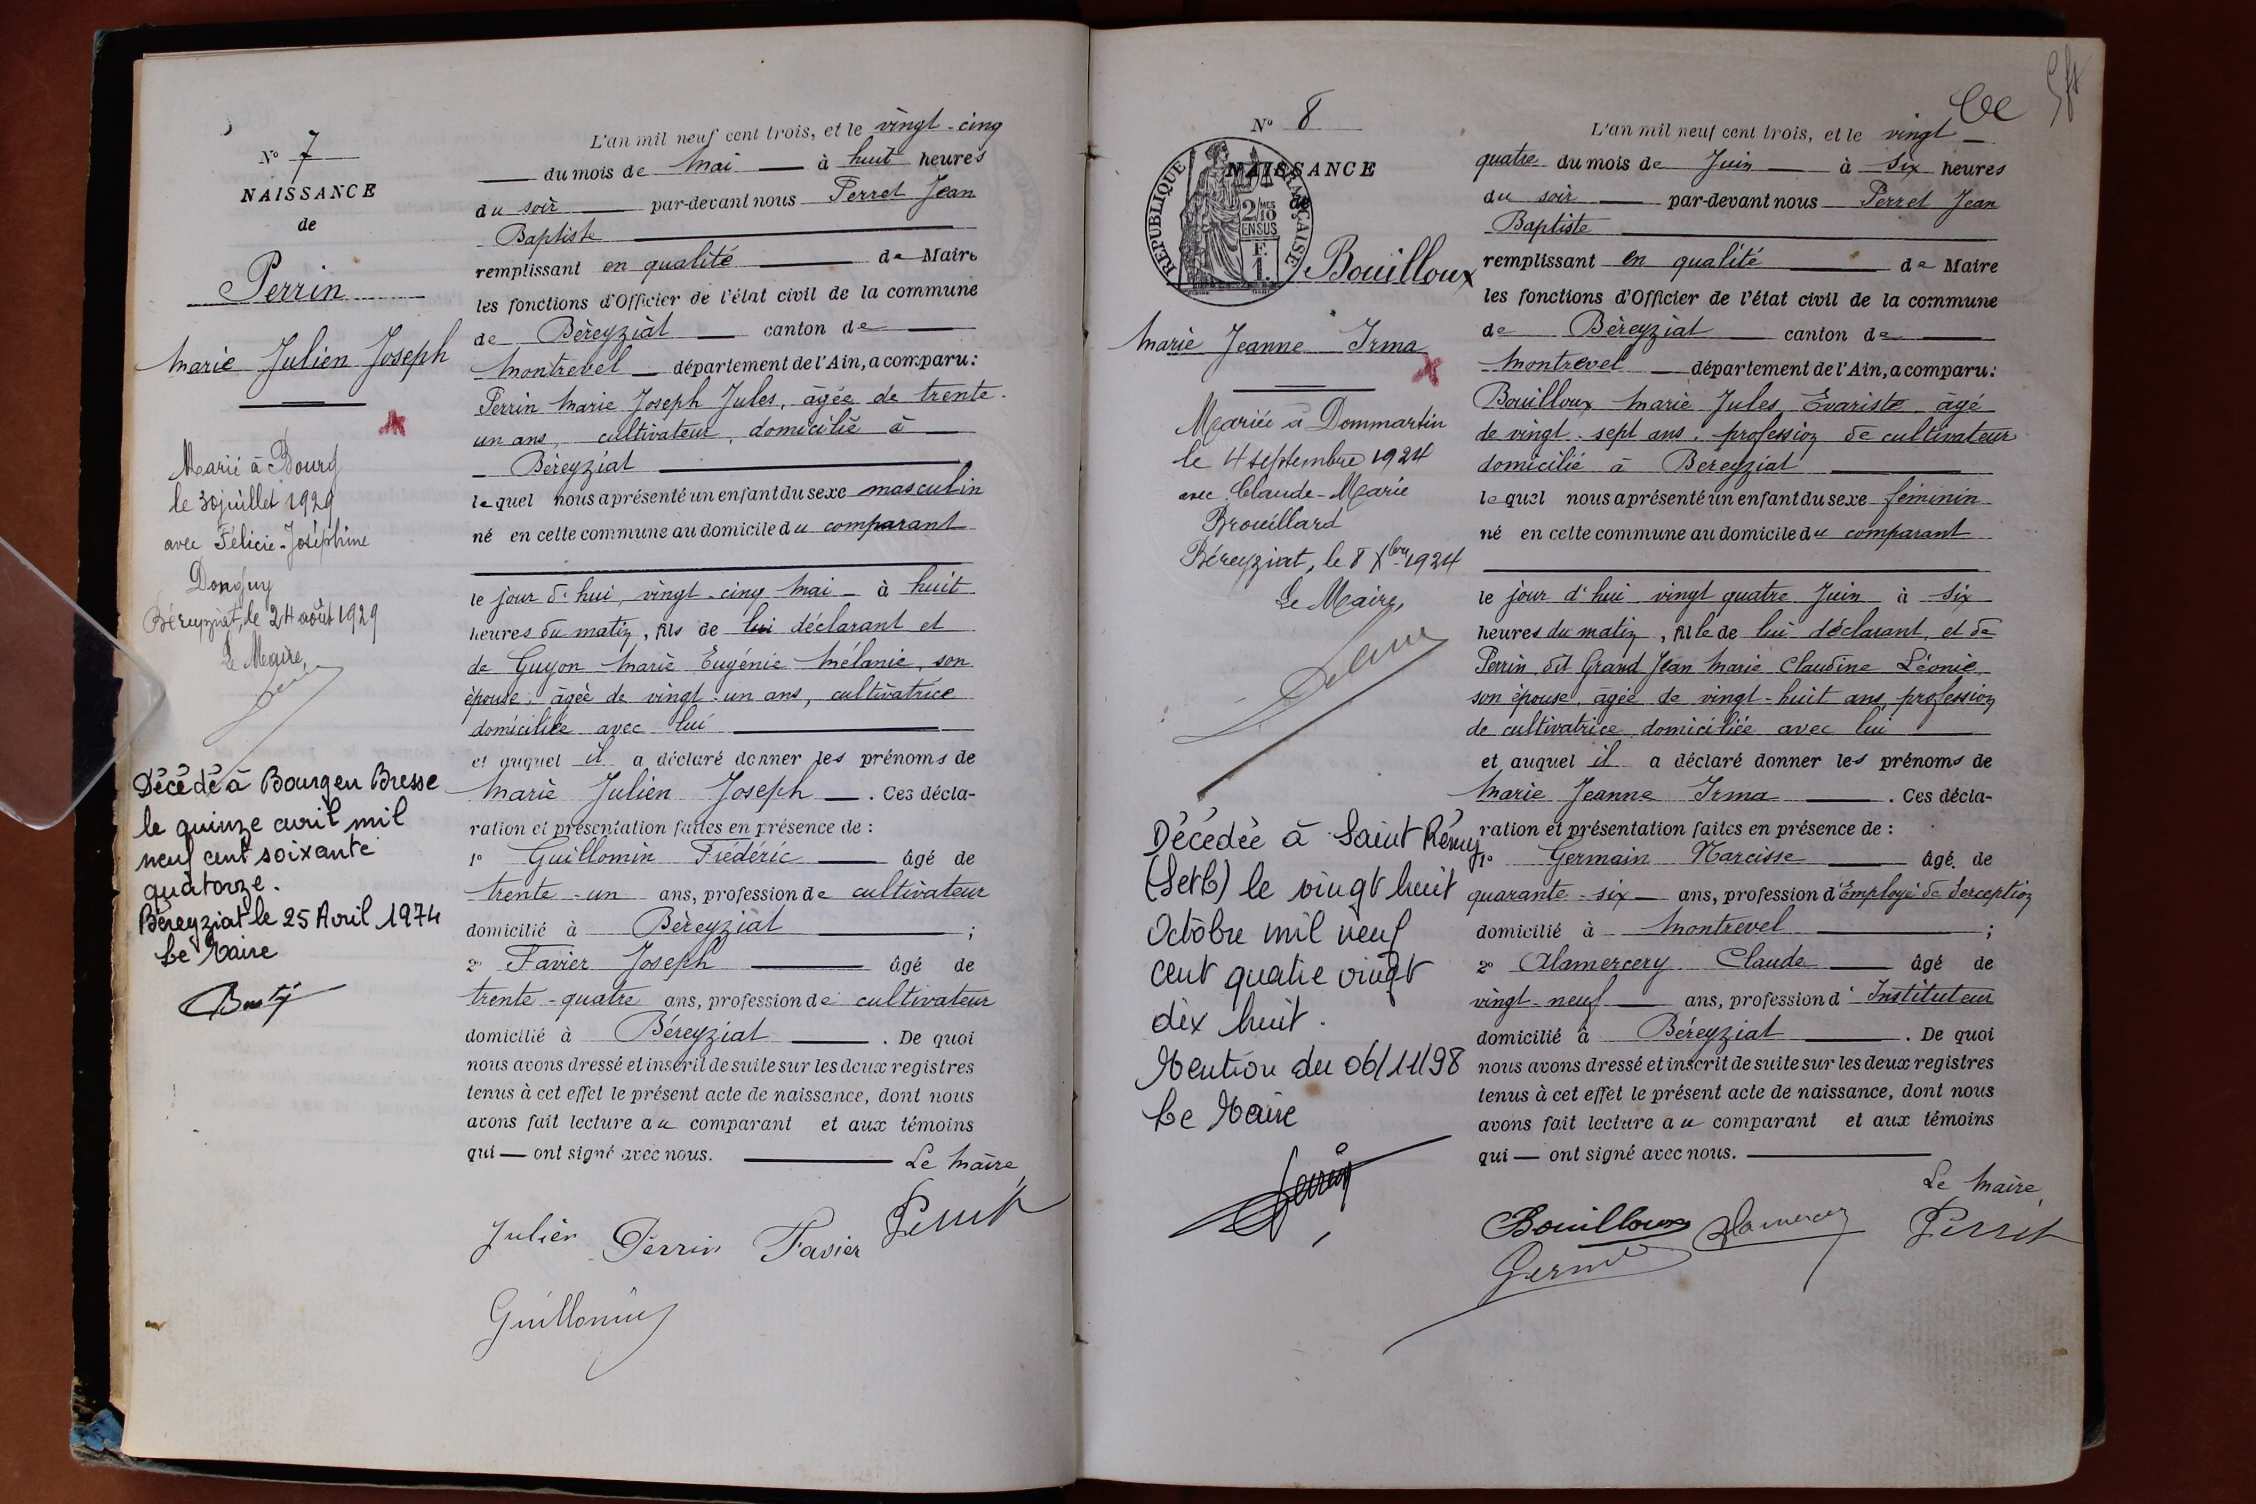 N° 7
NAISSANCE
de
Perrin
Marie Julien Joseph
Marié à Bourg
le 30 juillet 1929
avec Félicie-Joséphine
Donguy
Béreyziat, le 24 août 1929
Le Maire,
Décédé à Bourg en Bresse
le quinze avril mil
neuf cent soixante
quatorze.
Béreyziat le 25 Avril 1974
Le Maire
L'an mil neuf cent trois, et le vingt-cinq
du mois de Mai à huit heures
du soir par-devant nous Perret Jean
Baptiste
remplissant en qualité de Maire
les fonctions d'Officier de l'état civil de la commune
de Béreyziat canton de
Montrevel département de l'Ain, a comparu:
Perrin Marie Joseph Jules, âgée de trente-
un ans, cultivateur, domicilié à
Béreyziat
lequel nous a présenté un enfant du sexe masculin
né en cette commune au domicile du comparant
le jour d'hui, vingt-cinq Mai à huit
heures du matin, fils de lui déclarant et
de Guyon Marie Eugénie Mélanie, son
épouse, âgée de vingt-un ans, cultivatrice
domiciliée avec lui
et auquel il a déclaré donner les prénoms de
Marie Julien Joseph. Ces décla-
ration et présentation faites en présence de :
1° Guillomin Frédéric âgé de
trente-un ans, profession de cultivateur
domicilié à Béreyziat ;
2° Favier Joseph âgé de
trente-quatre ans, profession de cultivateur
domicilié à Béreyziat. De quoi
nous avons dressé et inscrit de suite sur les deux registres
tenus à cet effet le présent acte de naissance, dont nous
avons fait lecture au comparant et aux témoins
qui — ont signé avec nous.
Le Maire,
Julien Perrin Favier Perret
Guillomin
N° 8
NAISSANCE
de
REPUBLIQUE FRANÇAISE
2/10 MES
EN SUS
F.
1.
Bouilloux
Marie Jeanne Irma
Mariée à Dommartin
le 4 septembre 1924
avec Claude-Marie
Brouillard
Béreyziat, le 8 Xbre 1924
Le Maire,
Décédée à Saint Rémy
(SetL) le vingt huit
Octobre mil neuf
cent quatre vingt
dix huit.
Mention du 06/11/98
Le Maire
L'an mil neuf cent trois, et le vingt-
quatre du mois de Juin à six heures
du soir par-devant nous Perret Jean
Baptiste
remplissant en qualité de Maire
les fonctions d'Officier de l'état civil de la commune
de Béreyziat canton de
Montrevel département de l'Ain, a comparu:
Bouilloux Marie Jules Evariste âgé
de vingt-sept ans, profession de cultivateur
domicilié à Béreyziat
lequel nous a présenté un enfant du sexe féminin
né en cette commune au domicile du comparant
le jour d'hui vingt quatre Juin à six
heures du matin, fille de lui déclarant, et de
Perrin dit Grand Jean Marie Claudine Léonie
son épouse, âgée de vingt-huit ans, profession
de cultivatrice domiciliée avec lui
et auquel il a déclaré donner les prénoms de
Marie Jeanne Irma. Ces décla-
ration et présentation faites en présence de :
1° Germain Narcisse âgé de
quarante-six ans, profession d'Employé de perception
domicilié à Montrevel ;
2° Alamercery Claude âgé de
vingt-neuf ans, profession d'Instituteur
domicilié à Béreyziat. De quoi
nous avons dressé et inscrit de suite sur les deux registres
tenus à cet effet le présent acte de naissance, dont nous
avons fait lecture au comparant et aux témoins
qui — ont signé avec nous.
Le Maire,
Bouilloux Alamercery Perret